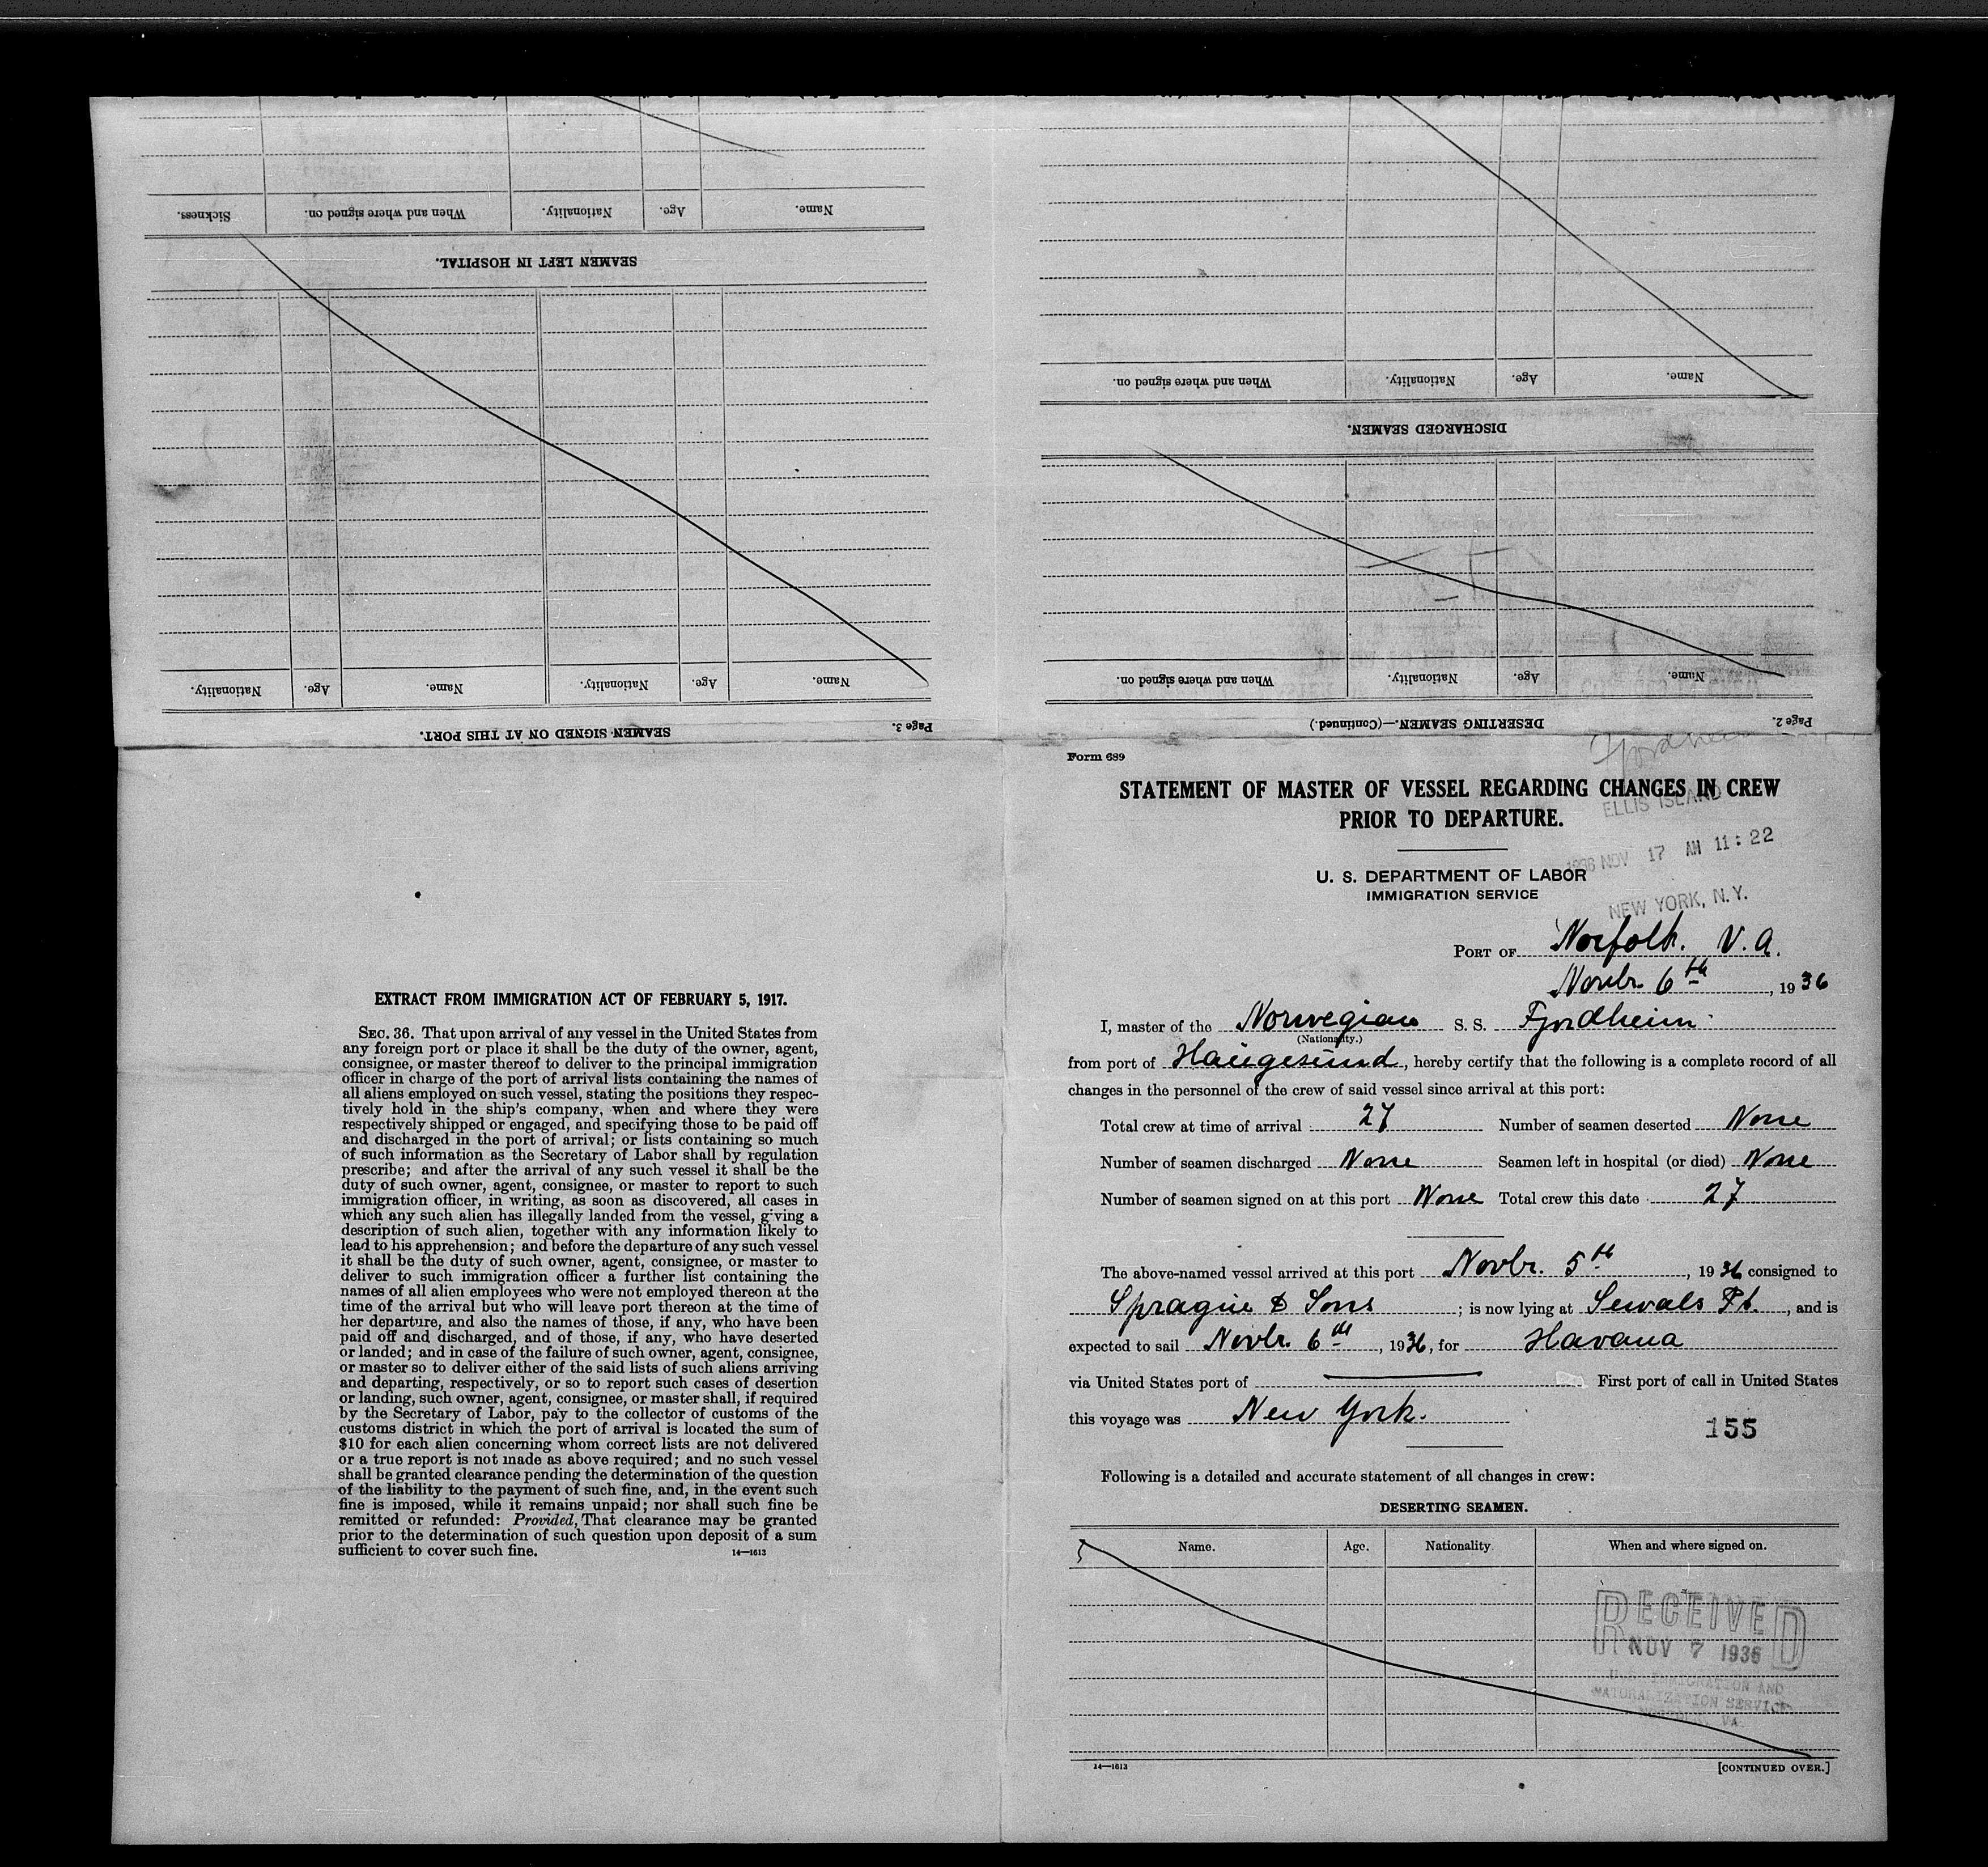 Sickness. When and where signed on. Nationality. Age. Name.
SEAMEN LEFT IN HOSPITAL.
Nationality. Age. Name. Nationality. Age. Name.
SEAMEN SIGNED ON AT THIS PORT.
Page 3.
When and where signed on. Nationality. Age. Name.
DISCHARGED SEAMEN.
When and where signed on. Nationality. Age. Name.
DESERTING SEAMEN.—(Continued.)
Page 2.
EXTRACT FROM IMMIGRATION ACT OF FEBRUARY 5, 1917.
SEC. 36. That upon arrival of any vessel in the United States from
any foreign port or place it shall be the duty of the owner, agent,
consignee, or master thereof to deliver to the principal immigration
officer in charge of the port of arrival lists containing the names of
all aliens employed on such vessel, stating the positions they respec-
tively hold in the ship's company, when and where they were
respectively shipped or engaged, and specifying those to be paid off
and discharged in the port of arrival; or lists containing so much
of such information as the Secretary of Labor shall by regulation
prescribe; and after the arrival of any such vessel it shall be the
duty of such owner, agent, consignee, or master to report to such
immigration officer, in writing, as soon as discovered, all cases in
which any such alien has illegally landed from the vessel, giving a
description of such alien, together with any information likely to
lead to his apprehension; and before the departure of any such vessel
it shall be the duty of such owner, agent, consignee, or master to
deliver to such immigration officer a further list containing the
names of all alien employees who were not employed thereon at the
time of the arrival but who will leave port thereon at the time of
her departure, and also the names of those, if any, who have been
paid off and discharged, and of those, if any, who have deserted
or landed; and in case of the failure of such owner, agent, consignee,
or master so to deliver either of the said lists of such aliens arriving
and departing, respectively, or so to report such cases of desertion
or landing, such owner, agent, consignee, or master shall, if required
by the Secretary of Labor, pay to the collector of customs of the
customs district in which the port of arrival is located the sum of
$10 for each alien concerning whom correct lists are not delivered
or a true report is not made as above required; and no such vessel
shall be granted clearance pending the determination of the question
of the liability to the payment of such fine, and, in the event such
fine is imposed, while it remains unpaid; nor shall such fine be
remitted or refunded: Provided, That clearance may be granted
prior to the determination of such question upon deposit of a sum
sufficient to cover such fine.
14—1613
Form 689
Fjordheim
STATEMENT OF MASTER OF VESSEL REGARDING CHANGES IN CREW
PRIOR TO DEPARTURE.
ELLIS ISLAND
1936 NOV 17 AM 11:22
NEW YORK, N.Y.
U. S. DEPARTMENT OF LABOR
IMMIGRATION SERVICE
PORT OF Norfolk. V.a.
Novbr. 6th, 1936
I, master of the Norwegian S. S. Fjordheim
(Nationality.)
from port of Haugesund, hereby certify that the following is a complete record of all
changes in the personnel of the crew of said vessel since arrival at this port:
Total crew at time of arrival 27 Number of seamen deserted None
Number of seamen discharged None Seamen left in hospital (or died) None
Number of seamen signed on at this port None Total crew this date 27
The above-named vessel arrived at this port Novbr. 5th, 1936 consigned to
Sprague & Sons; is now lying at Sewals Pt., and is
expected to sail Novbr. 6th, 1936, for Havana
via United States port of First port of call in United States
this voyage was New York.
155
Following is a detailed and accurate statement of all changes in crew:
DESERTING SEAMEN.
Name. Age. Nationality. When and where signed on.
RECEIVED
NOV 7 1936
IMMIGRATION AND
NATURALIZATION SERVICE
VA
14—1613
[CONTINUED OVER.]